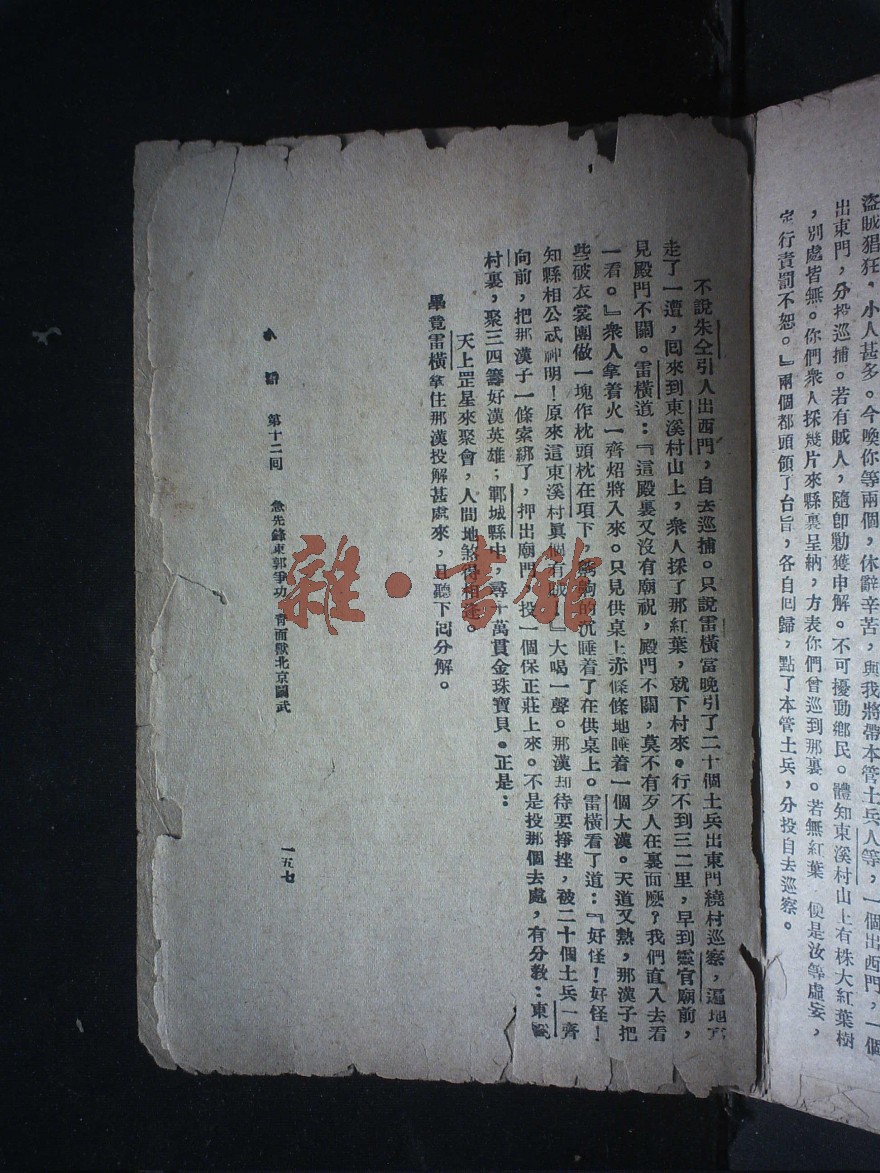 盜賊猖狂，小人甚多。今喚你等兩個，休辭辛苦，與我將帶本管土兵人等，一個出西門，一個
出東門，分投巡捕。若有賊人，隨即勦獲申解。不可擾動鄉民。體知東溪村山上有株大紅葉樹
，別處皆無。你們衆人採幾片來縣裏呈納，方表你們曾巡到那裏。若無紅葉 便是汝等虛妄，
定行責罰不恕。』兩個都頭領了台旨，各自回歸，點了本管土兵，分投自去巡察。
不說朱仝引人出西門，自去巡捕。只說雷橫當晚引了二十個土兵出東門繞村巡察，遍地
走了一遭，回來到東溪村山上，衆人採了那紅葉，就下村來。行不到三二里，早到靈官廟前，
見殿門不關。雷橫道：『這殿裏又沒有廟祝，殿門不關，莫不有歹人在裏面麽？我們直入去看
一看。』衆人拿着火一齊炤將入來。只見供桌上赤條條地睡着一個大漢。天道又熱，那漢子把
些破衣裳團做一塊作枕頭枕在項下 的沉睡着了在供桌上。雷橫看了道：『好怪！好怪！
知縣相公忒神明！原來這東溪村眞個有賊！』大喝一聲。那漢却待要掙挫，被二十個土兵一齊
向前，把那漢子一條索綁了，押出廟門 投一個保正莊上來。不是投那個去處，有分敎：東溪
村裏，聚三四籌好漢英雄；鄆城縣中，尋十萬貫金珠寶貝。正是：
天上罡星來聚會，人間地煞得相逢。
畢竟雷橫拿住那漢投解甚處來，且聽下回分解。
水滸 第十二回 急先鋒東郭爭功 靑面獸北京鬪武 一五七
雜·書館